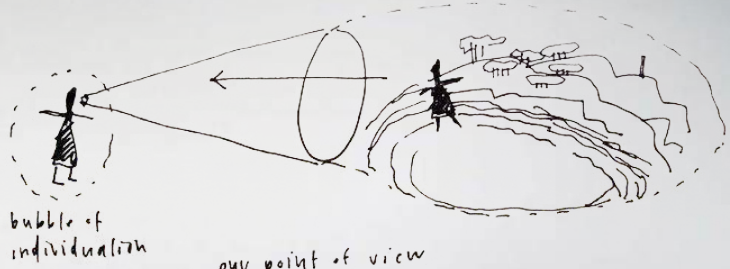 bubble of
individuation
our point of view